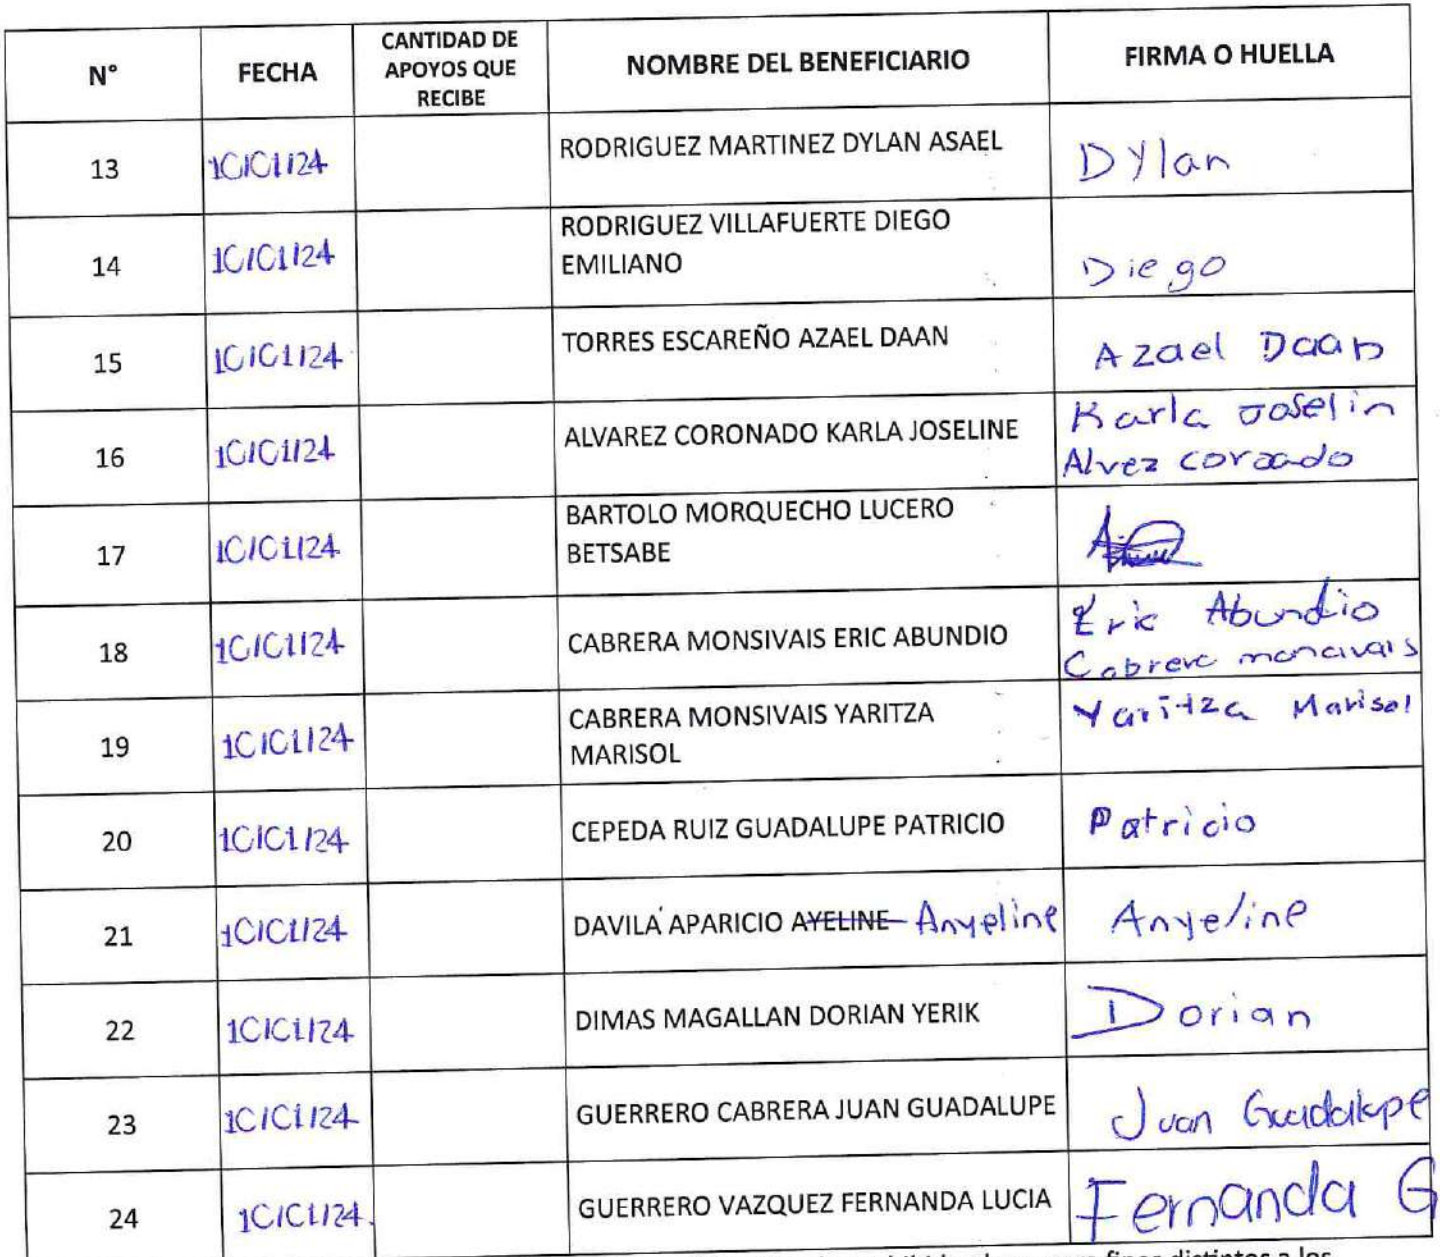 N° FECHA CANTIDAD DE APOYOS QUE RECIBE NOMBRE DEL BENEFICIARIO FIRMA O HUELLA
13 10/01/24 RODRIGUEZ MARTINEZ DYLAN ASAEL Dylan
14 10/01/24 RODRIGUEZ VILLAFUERTE DIEGO
EMILIANO Diego
15 10/01/24 TORRES ESCAREÑO AZAEL DAAN Azael Daan
16 10/01/24 ALVAREZ CORONADO KARLA JOSELINE Karla Joselin
Alvez
17 10/01/24 BARTOLO MORQUECHO LUCERO
BETSABE
18 10/01/24 CABRERA MONSIVAIS ERIC ABUNDIO Eric Abundio
Cabrera moncivais
19 10/01/24 CABRERA MONSIVAIS YARITZA
MARISOL Yaritza Marisol
20 10/01/24 CEPEDA RUIZ GUADALUPE PATRICIO Patricio
21 10/01/24 DAVILA APARICIO AYELINE Anyeline Anyeline
22 10/01/24 DIMAS MAGALLAN DORIAN YERIK Dorian
23 10/01/24 GUERRERO CABRERA JUAN GUADALUPE Juan Guadalupe
24 10/01/24 GUERRERO VAZQUEZ FERNANDA LUCIA Fernanda G
fines distintos a los